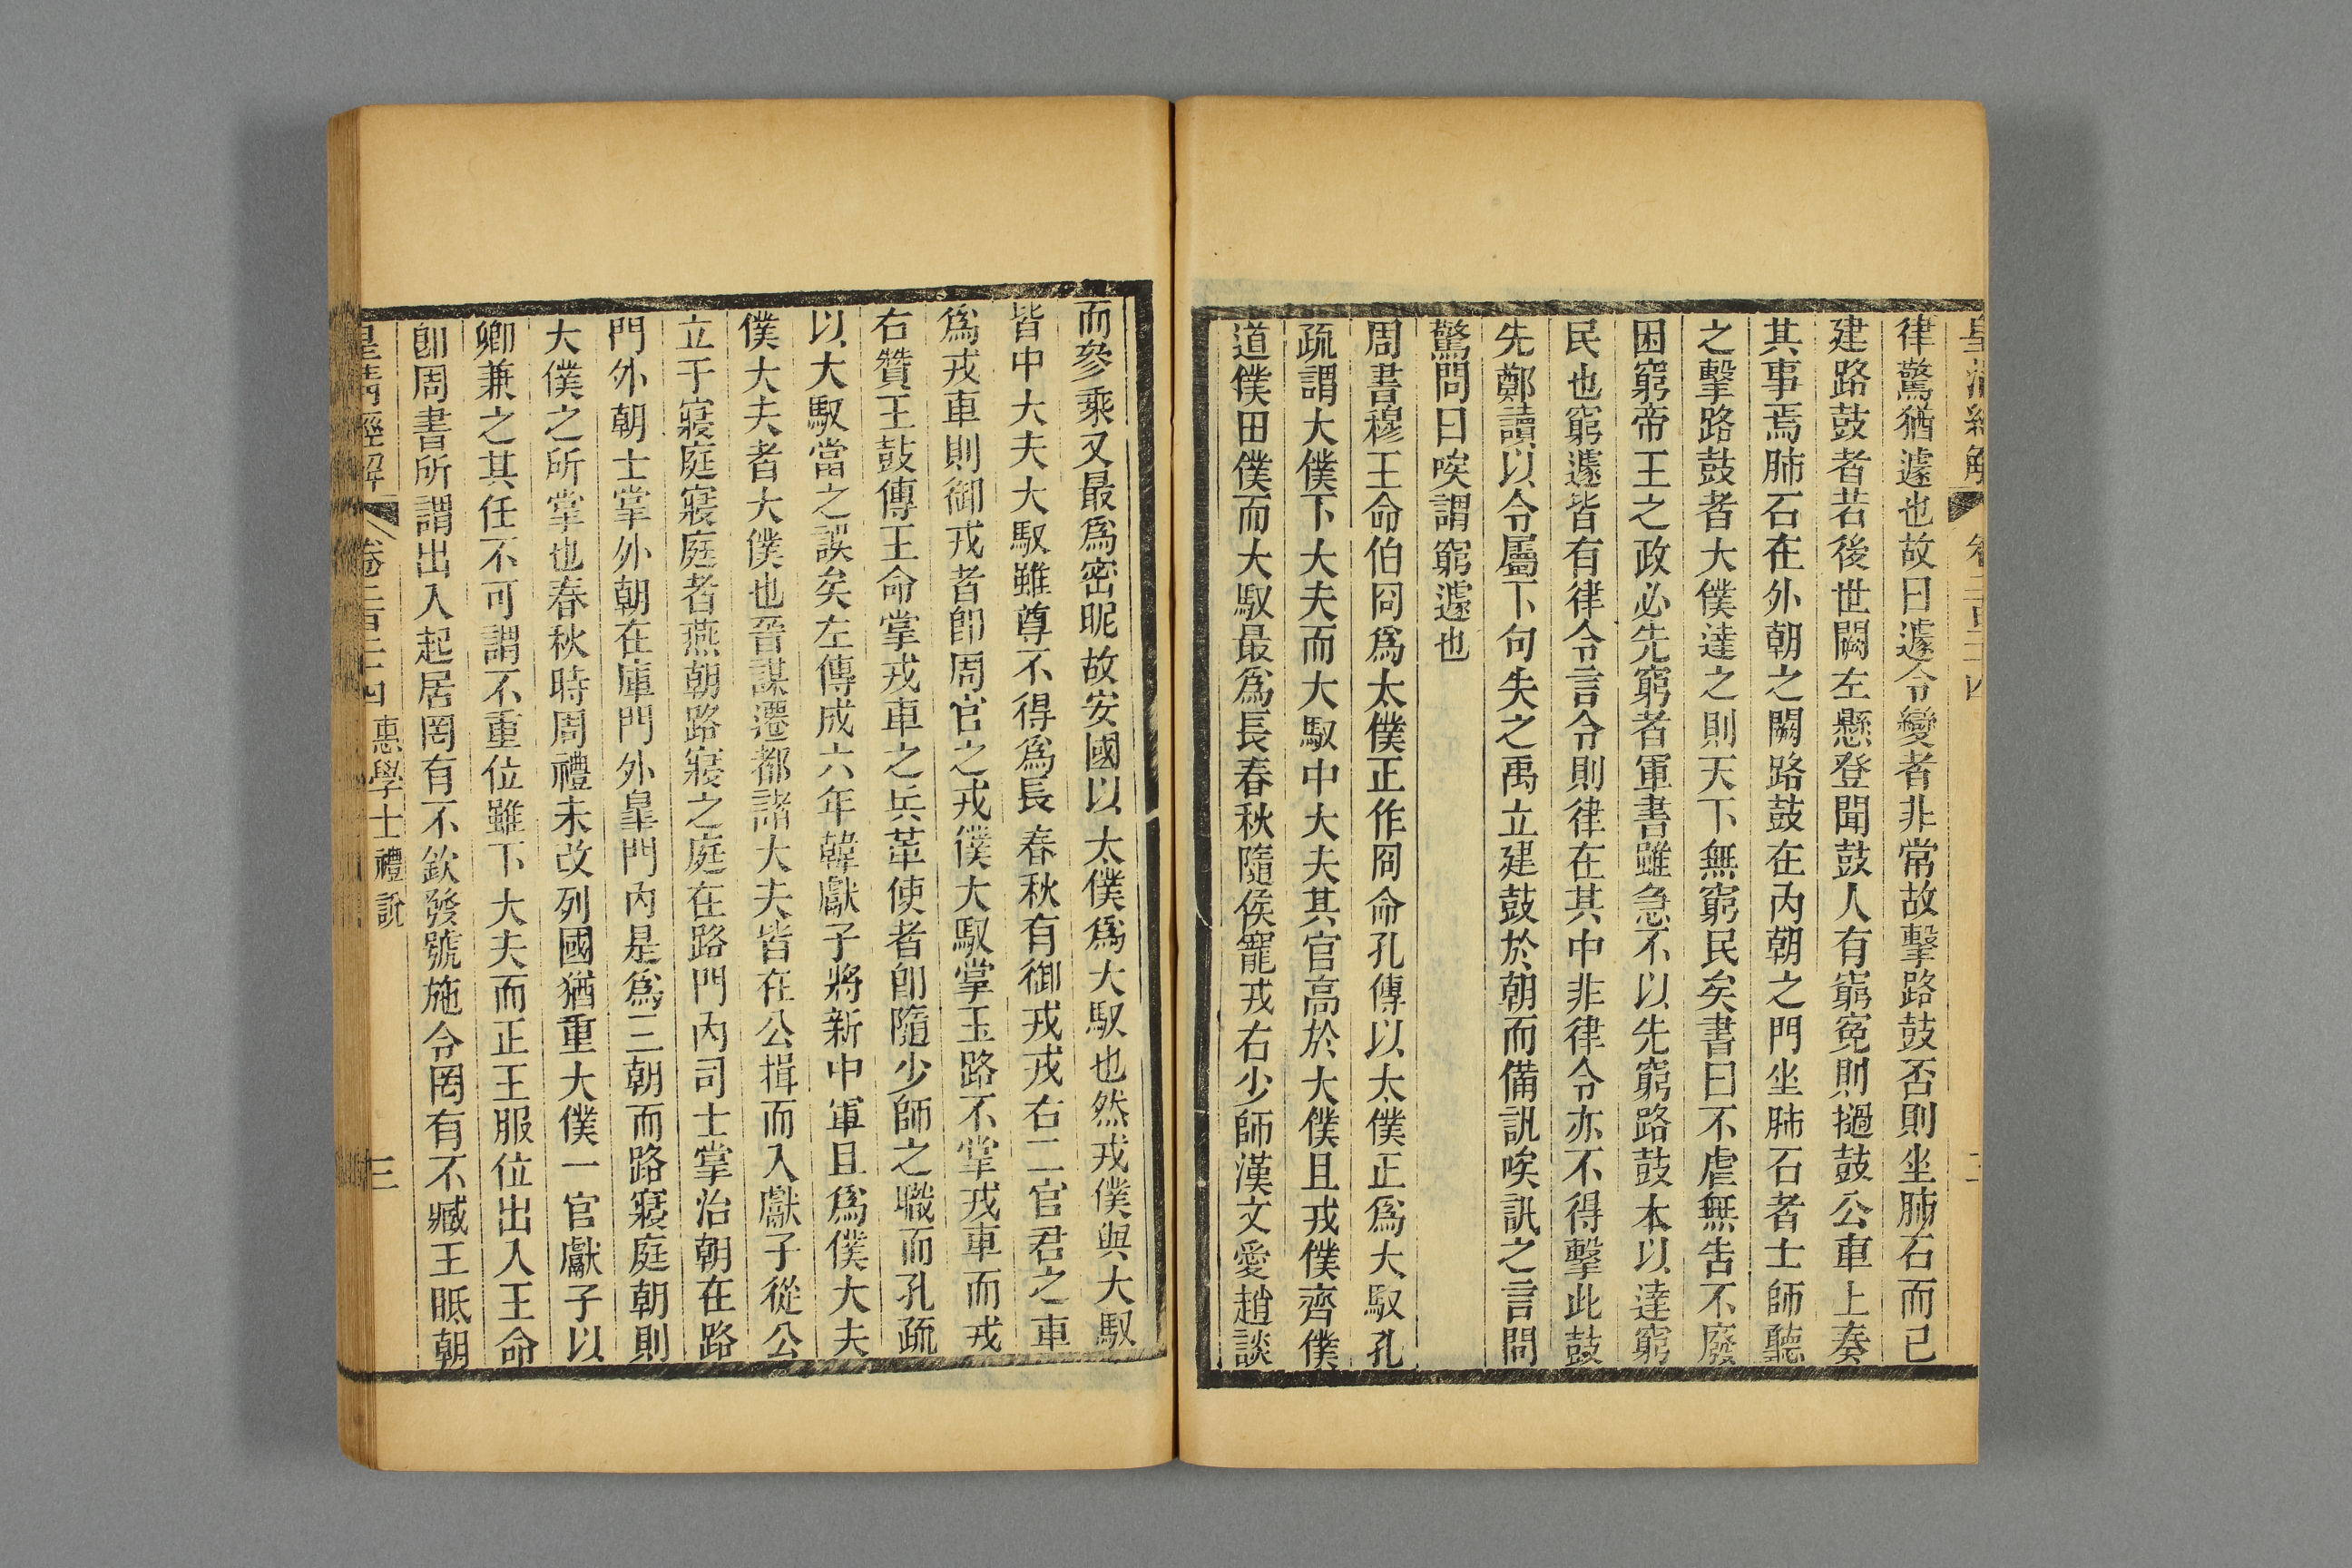 律驚猶遽也故曰遽令變者非常故擊路鼓否則坐肺石而已
建路鼓者若後世闕左懸登聞鼓人有窮寃則撾鼓公車上奏
其事焉肺石在外朝之闕路鼓在內朝之門坐肺石者士師聽
之擊路鼓者大僕達之則天下無窮民矣書曰不虐無告不廢
困窮帝王之政必先窮者軍書雖急不以先窮路鼓本以達窮
民也窮遽皆有律令言令則律在其中非律令亦不得擊此鼓
先鄭讀以令屬下句失之禹立建鼓於朝而備訊唉訊之言問
驚問曰唉謂窮遽也
周書穆王命伯冏爲太僕正作冏命孔傳以太僕正爲大馭孔
疏謂大僕下大夫而大馭中大夫其官高於大僕且戎僕齊僕
道僕田僕而大馭最爲長春秋隨侯寵戎右少師漢文愛趙談
而參乘又最爲密昵故安國以太僕爲大馭也然戎僕與大馭
皆中大夫大馭雖尊不得爲長春秋有御戎戎右二官君之車
爲戎車則御戎者卽周官之戎僕大馭掌玉路不掌戎車而戎
右贊王鼓傳王命掌戎車之兵革使者卽隨少師之職而孔疏
以大馭當之誤矣左傳成六年韓獻子將新中軍且爲僕大夫
僕大夫者大僕也晉謀遷都諸大夫皆在公揖而入獻子從公
立于寢庭寢庭者燕朝路寢之庭在路門內司士掌治朝在路
門外朝士掌外朝在庫門外皐門內是爲三朝而路寢庭朝則
大僕之所掌也春秋時周禮未改列國猶重大僕一官獻子以
卿兼之其任不可謂不重位雖下大夫而正王服位出入王命
卽周書所謂出入起居罔有不欽發號施令罔有不臧王眡朝
皇清經解 卷二百二十四 惠學士禮說 三